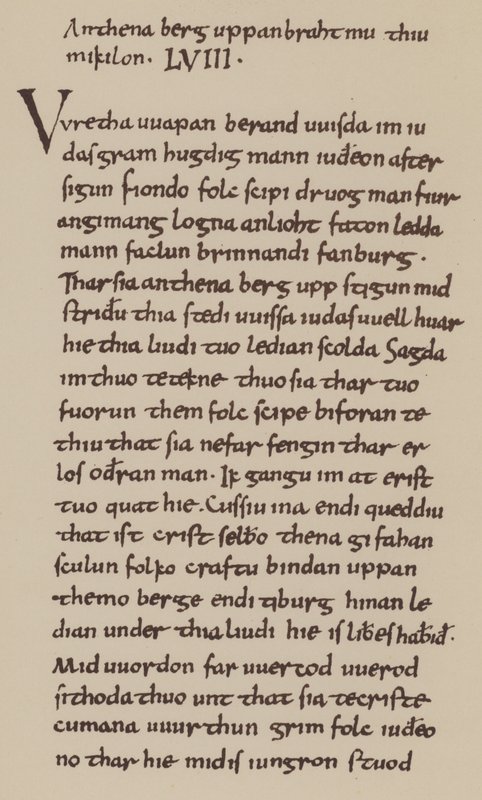 Anthena berg uppan braht mu thiu
mikilon· LVIII·
Vvretha uuapan berand uuisda im iu
das gram hugdig mann iuđeon after
sigun fiondo folc scipi druog man fiur
angimang logna anlioht faton ledda
mann faclun brinnandi fanburg·
Thar sia anthena berg upp stigun mid
striđu thia stedi uuissa iudas uuell huar
hie thia liudi tuo ledian scolda Sagda
im thuo te tekne thuo sia thar tuo
fuorun them folc scipe biforan te
thiu that sia ne far fengin thar er
los ođran man· Ik gangu im at erist
tuo quat hie· Cussiu ina endi queddiu
that ist crist selƀo thena gi fahan
sculun folko craftu bindan uppan
themo berge endi tiburg hinan le
dian under thia liudi hie is liƀes haƀiđ·
Mid uuordon far uuercod uuerod
sithoda thuo unt that sia te criste
cumana uuurthun grim folc iuđeo
no thar hie mid is iungron stuod